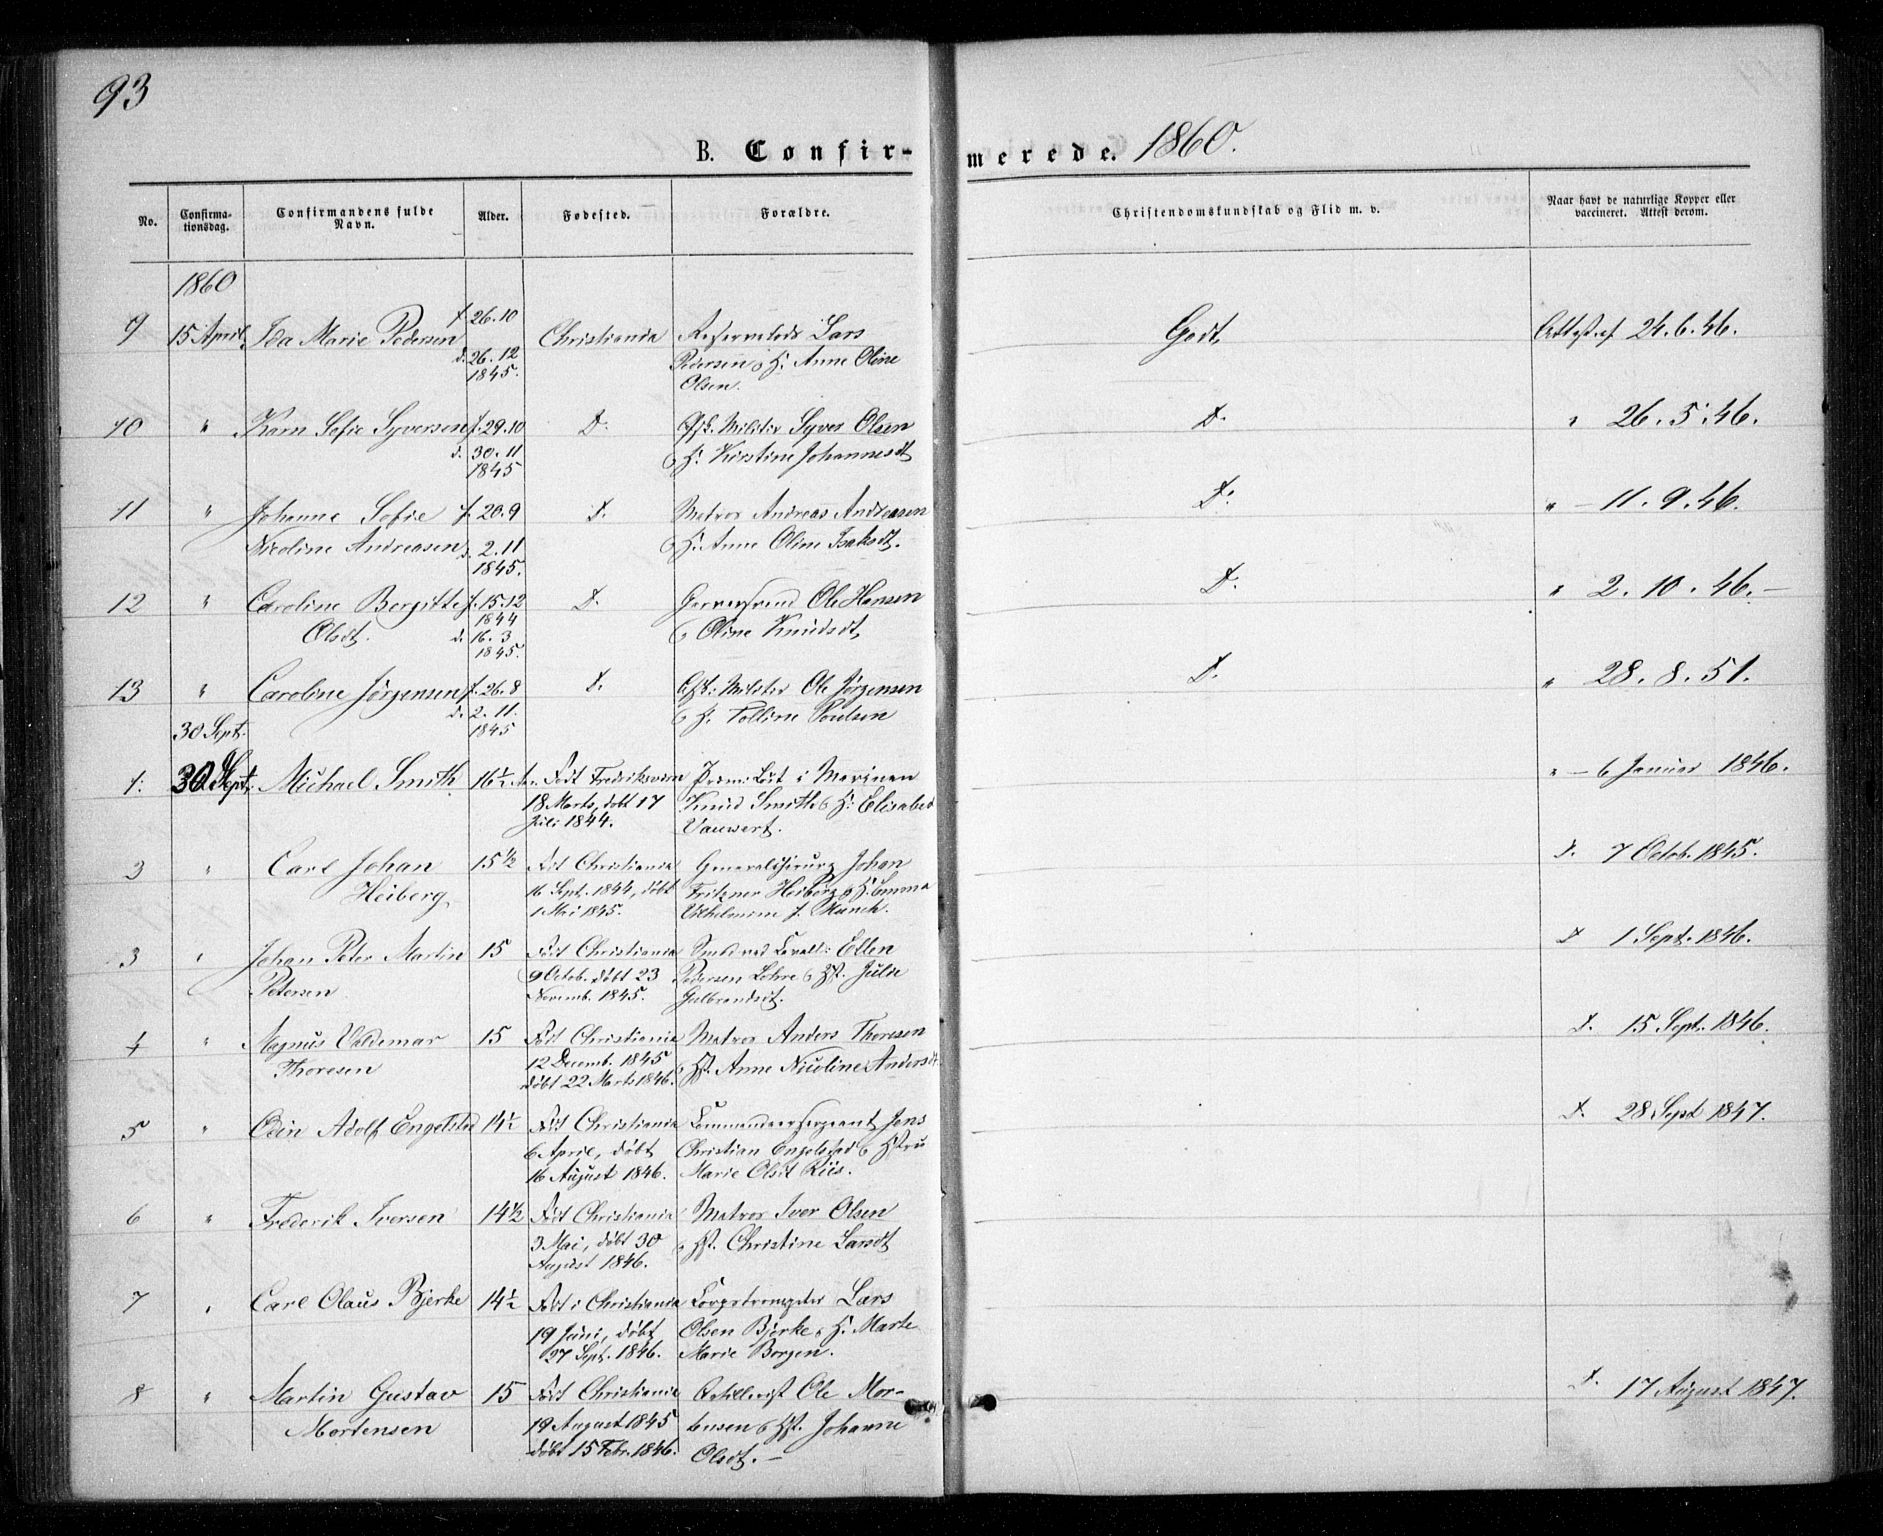 93
B. Confirmerede. 1860.
No. Confirmationsdag. Confirmandens fulde Navn. Alder. Fødested. Forældre. Christendomskundskab og Flid m. v. Naar havt de naturlige Kopper eller vaccineret. Attest derom.
1860
9 15 April Ida Marie Pedersen f. 26.10 Christiania Lars Godt Attest af 24.6.46.
d. 26.12 Pedersen & H. Anne Oline
1845. Olsen.
10 " Karn Sofie Syversen f. 29.10 D. Gsk. Militær Syver Olsen D. " 26.5.46.
d. 30.11 & H. Kirstine Johannesdt
1845
11 " Johanne Sofie f. 20.9 D. Matros Andreas Andreasen D. " — 11.9.46.
Nicoline Andreasen d. 2.11 & H. Anne Oline Isaksdt.
1845.
12 " Caroline Bergitte f. 15.12 D. Ole Hansen D. " 2.10.46. —
1844
Olsdt. d. 16.3 & Oline Knudsdt
1845.
13 " Caroline Jørgensen f. 26.8 D. Gsk. Militær Ole Jørgensen D. " 28.8.51.
d. 2.11. & H. Poulsen
30 Sept. 1845
1. 30 Sept. Michael Smith 16½ Født Fredriksværn Prem: Løit i Marinen " — 6 Januar 1846.
18 Marts, døbt 17 Knud Smith & H. Elisabed
Juli 1844. Vauwert.
3 " Carl Johan 15½ Født Christiania Generalchirurg Johan D. 7 Octob. 1845.
Heiberg 16 Sept. 1844, døbt Fritzner Heiberg & H. Emma
1 Mai 1845. Vilhelmine f. Munch.
3 " Johan Peter Martin 15 Født Christiania Ellen D 1 Sept. 1846.
Petersen 9 Octob. døbt 23 Pedersen Lohre & Hst. Julie
Novemb. 1845. Gulbrandsdt.
4 " Magnus Valdemar 15 Født Christiania Matros Anders Thoresen D. 15 Sept. 1846.
Thoresen 12 Decemb. 1845 & Hst. Anne Nicoline Andersdt.
døbt 22 Marts 1846.
5 " Odin Adolf Engelsted 14½ Født Christiania Commandeersergeant Jens D. 28 Sept 1847.
6 April, døbt Christian Engelsted & Hstru
16 August 1846. Marie Olsdt Riis.
6 " Frederik Iversen 14½ Født Christiania Matros Iver Olsen
3 Mai, døbt 30 & Hst. Christine Larsdt
August 1846.
7 " Carl Olaus Bjerke 14½ Født i Christiania Lars
19 Juni, døbt Olsen Bjerke & H. Marte
27 Sept. 1846. Marie Borgen.
8 " Martin Gustav 15 Født Christiania Artillerist Ole Mor- D. 17 August 1847.
Mortensen 19 August 1845 tensen & Hst. Johanne
døbt 15 Febr. 1846. Olsdt. —